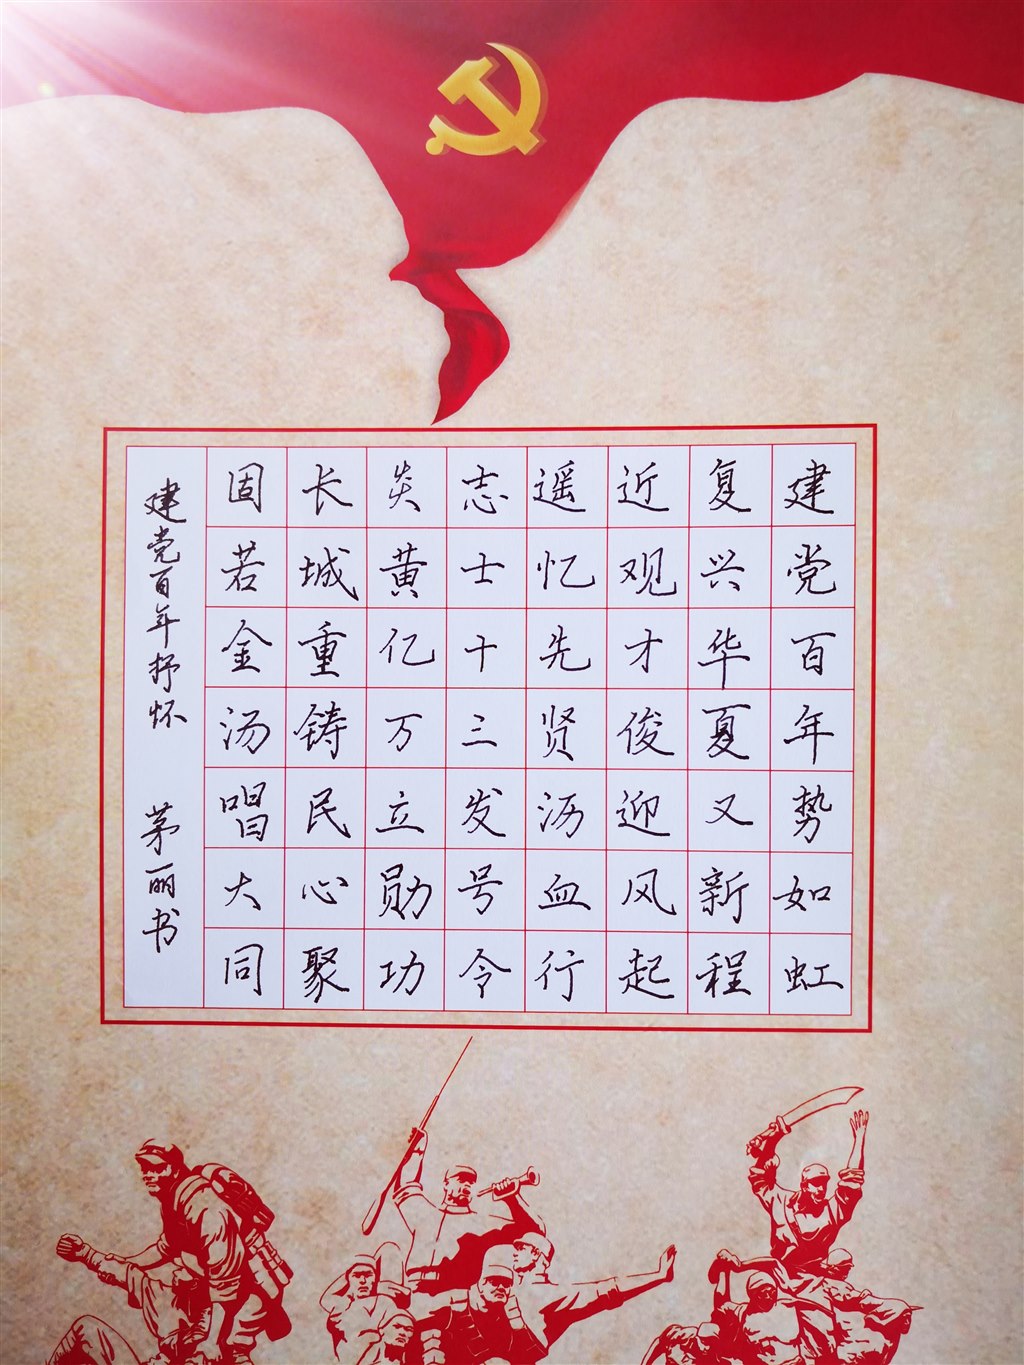 建党百年势如虹
复兴华夏又新程
近观才俊迎风起
遥忆先贤沥血行
志士十三发号令
炎黄亿万立勋功
长城重铸民心聚
固若金汤唱大同
建党百年抒怀 茅丽书